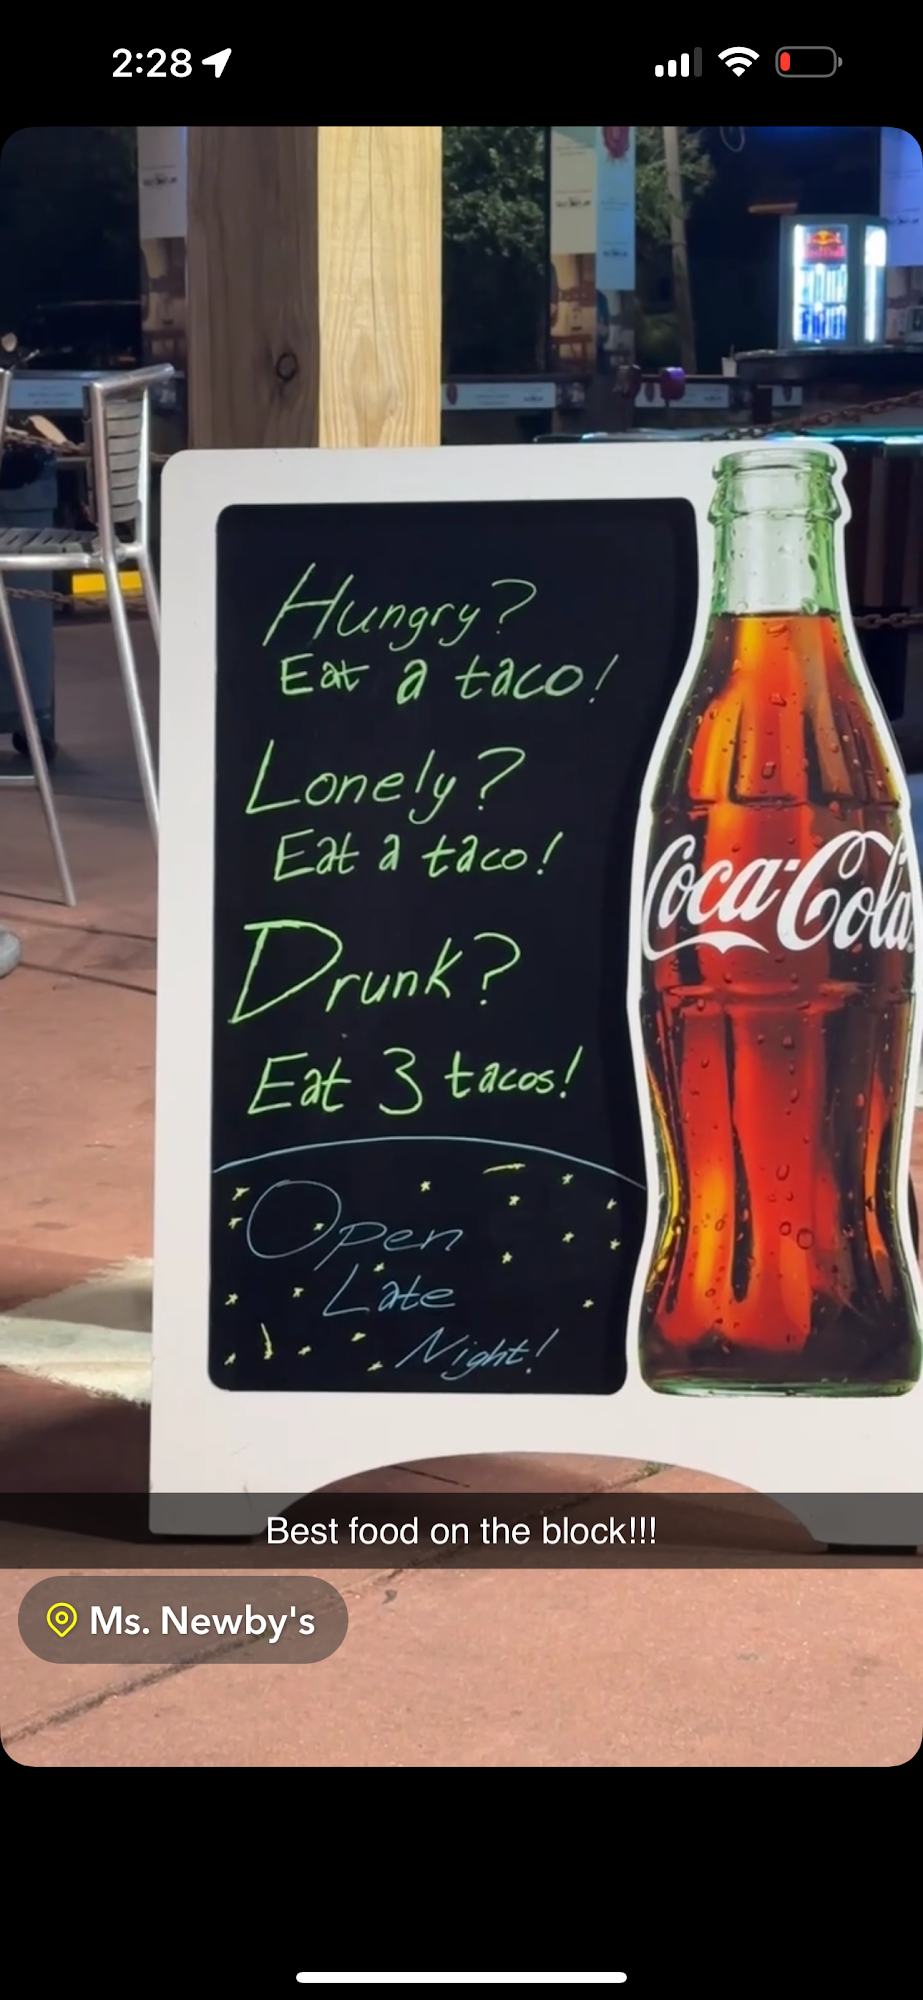 2:28
Red Bull
Hungry?
Eat a taco!
Lonely?
Eat a taco!
Drunk?
Eat 3 tacos!
Coca-Cola
Open
Late
Night!
Best food on the block!!!
Ms. Newby's